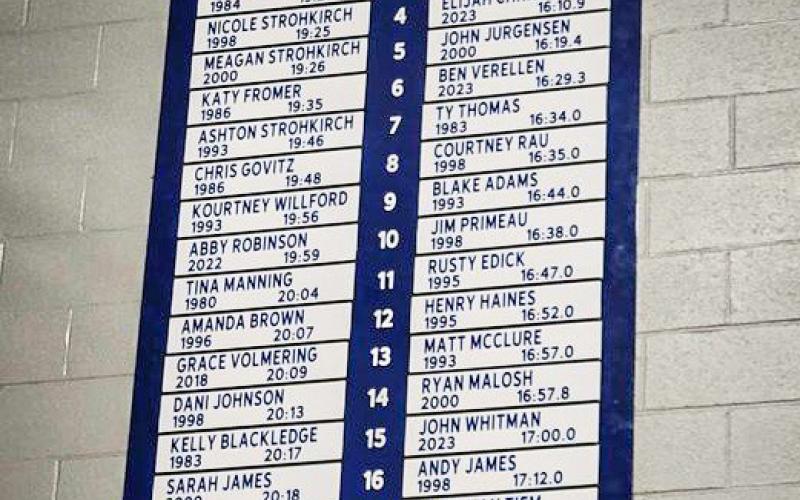 1984
NICOLE STROHKIRCH
1998 19:25
MEAGAN STROHKIRCH
2000 19:26
KATY FROMER
1986 19:35
ASHTON STROHKIRCH
1993 19:46
CHRIS GOVITZ
1986 19:48
KOURTNEY WILLFORD
1993 19:56
ABBY ROBINSON
2022 19:59
TINA MANNING
1980 20:04
AMANDA BROWN
1996 20:07
GRACE VOLMERING
2018 20:09
DANI JOHNSON
1998 20:13
KELLY BLACKLEDGE
1983 20:17
SARAH JAMES
20:18
4
5
6
7
8
9
10
11
12
13
14
15
16
ELIJAH
2023 16:10.9
JOHN JURGENSEN
2000 16:19.4
BEN VERELLEN
2023 16:29.3
TY THOMAS
1983 16:34.0
COURTNEY RAU
1998 16:35.0
BLAKE ADAMS
1993 16:44.0
JIM PRIMEAU
1998 16:38.0
RUSTY EDICK
1995 16:47.0
HENRY HAINES
1995 16:52.0
MATT MCCLURE
1993 16:57.0
RYAN MALOSH
2000 16:57.8
JOHN WHITMAN
2023 17:00.0
ANDY JAMES
1998 17:12.0